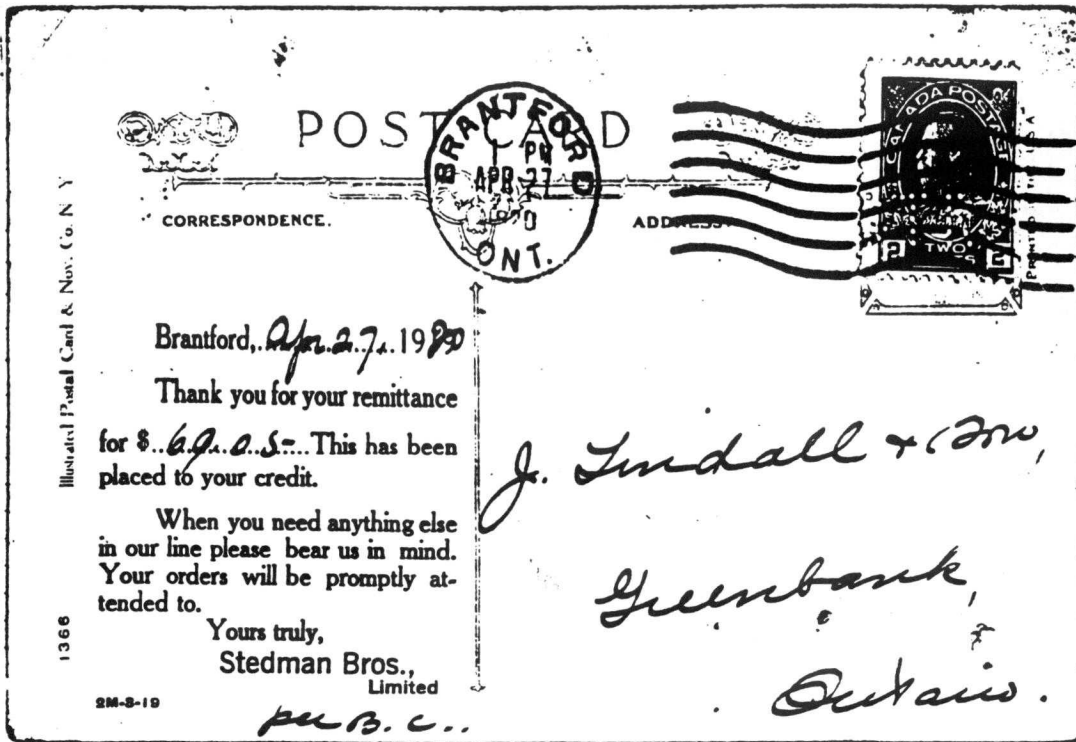 POST CARD
BRANTFORD
PM
APR 27
ONT.
CANADA POSTAGE
2 TWO 2
CORRESPONDENCE.
ADDRESS
Illustrated Postal Card & Nov. Co. N Y
1366
Brantford, Apr. 27. 1920
Thank you for your remittance
for $ 69.05 This has been
placed to your credit.
When you need anything else
in our line please bear us in mind.
Your orders will be promptly at-
tended to.
Yours truly,
Stedman Bros.,
Limited
per B. C..
2M-8-19
J. Lindall +
Greenbank,
Ontario.